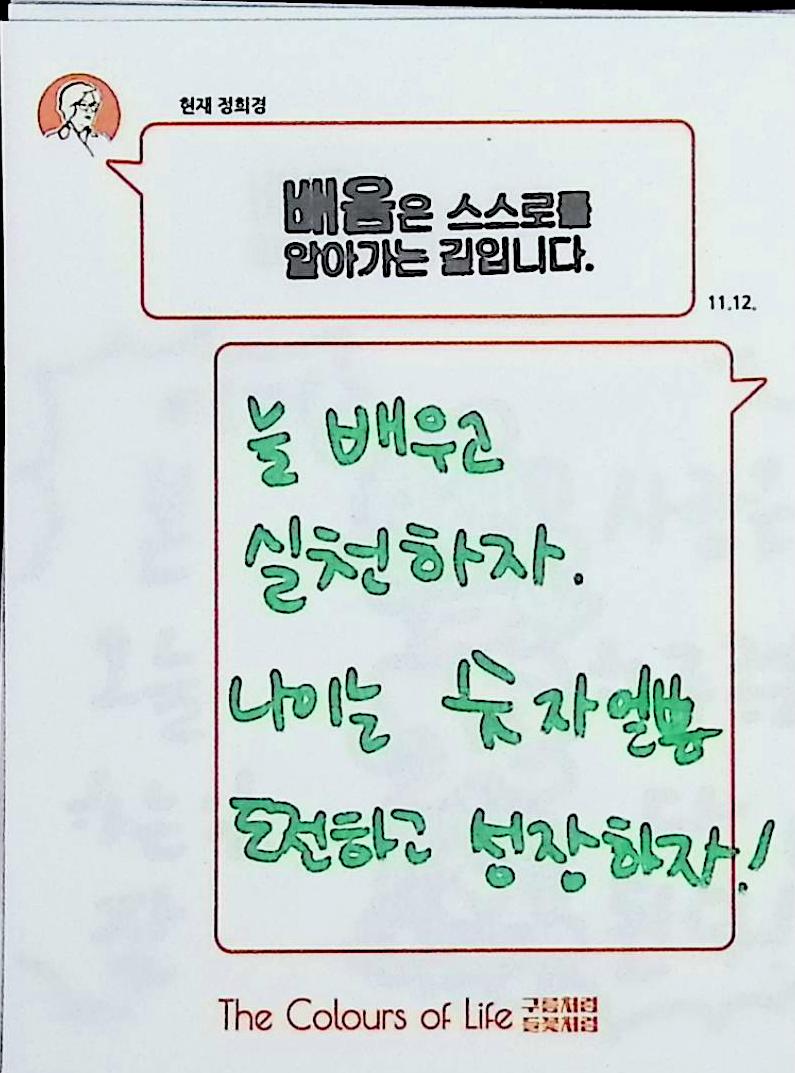 현재 정희경
배움은 스스로를
알아가는 길입니다.
11.12.
늘 배우고
실천하자.
나이는 숫자일뿐
도전하고 성장하자!
The Colours of Life 구름처럼
들꽃처럼